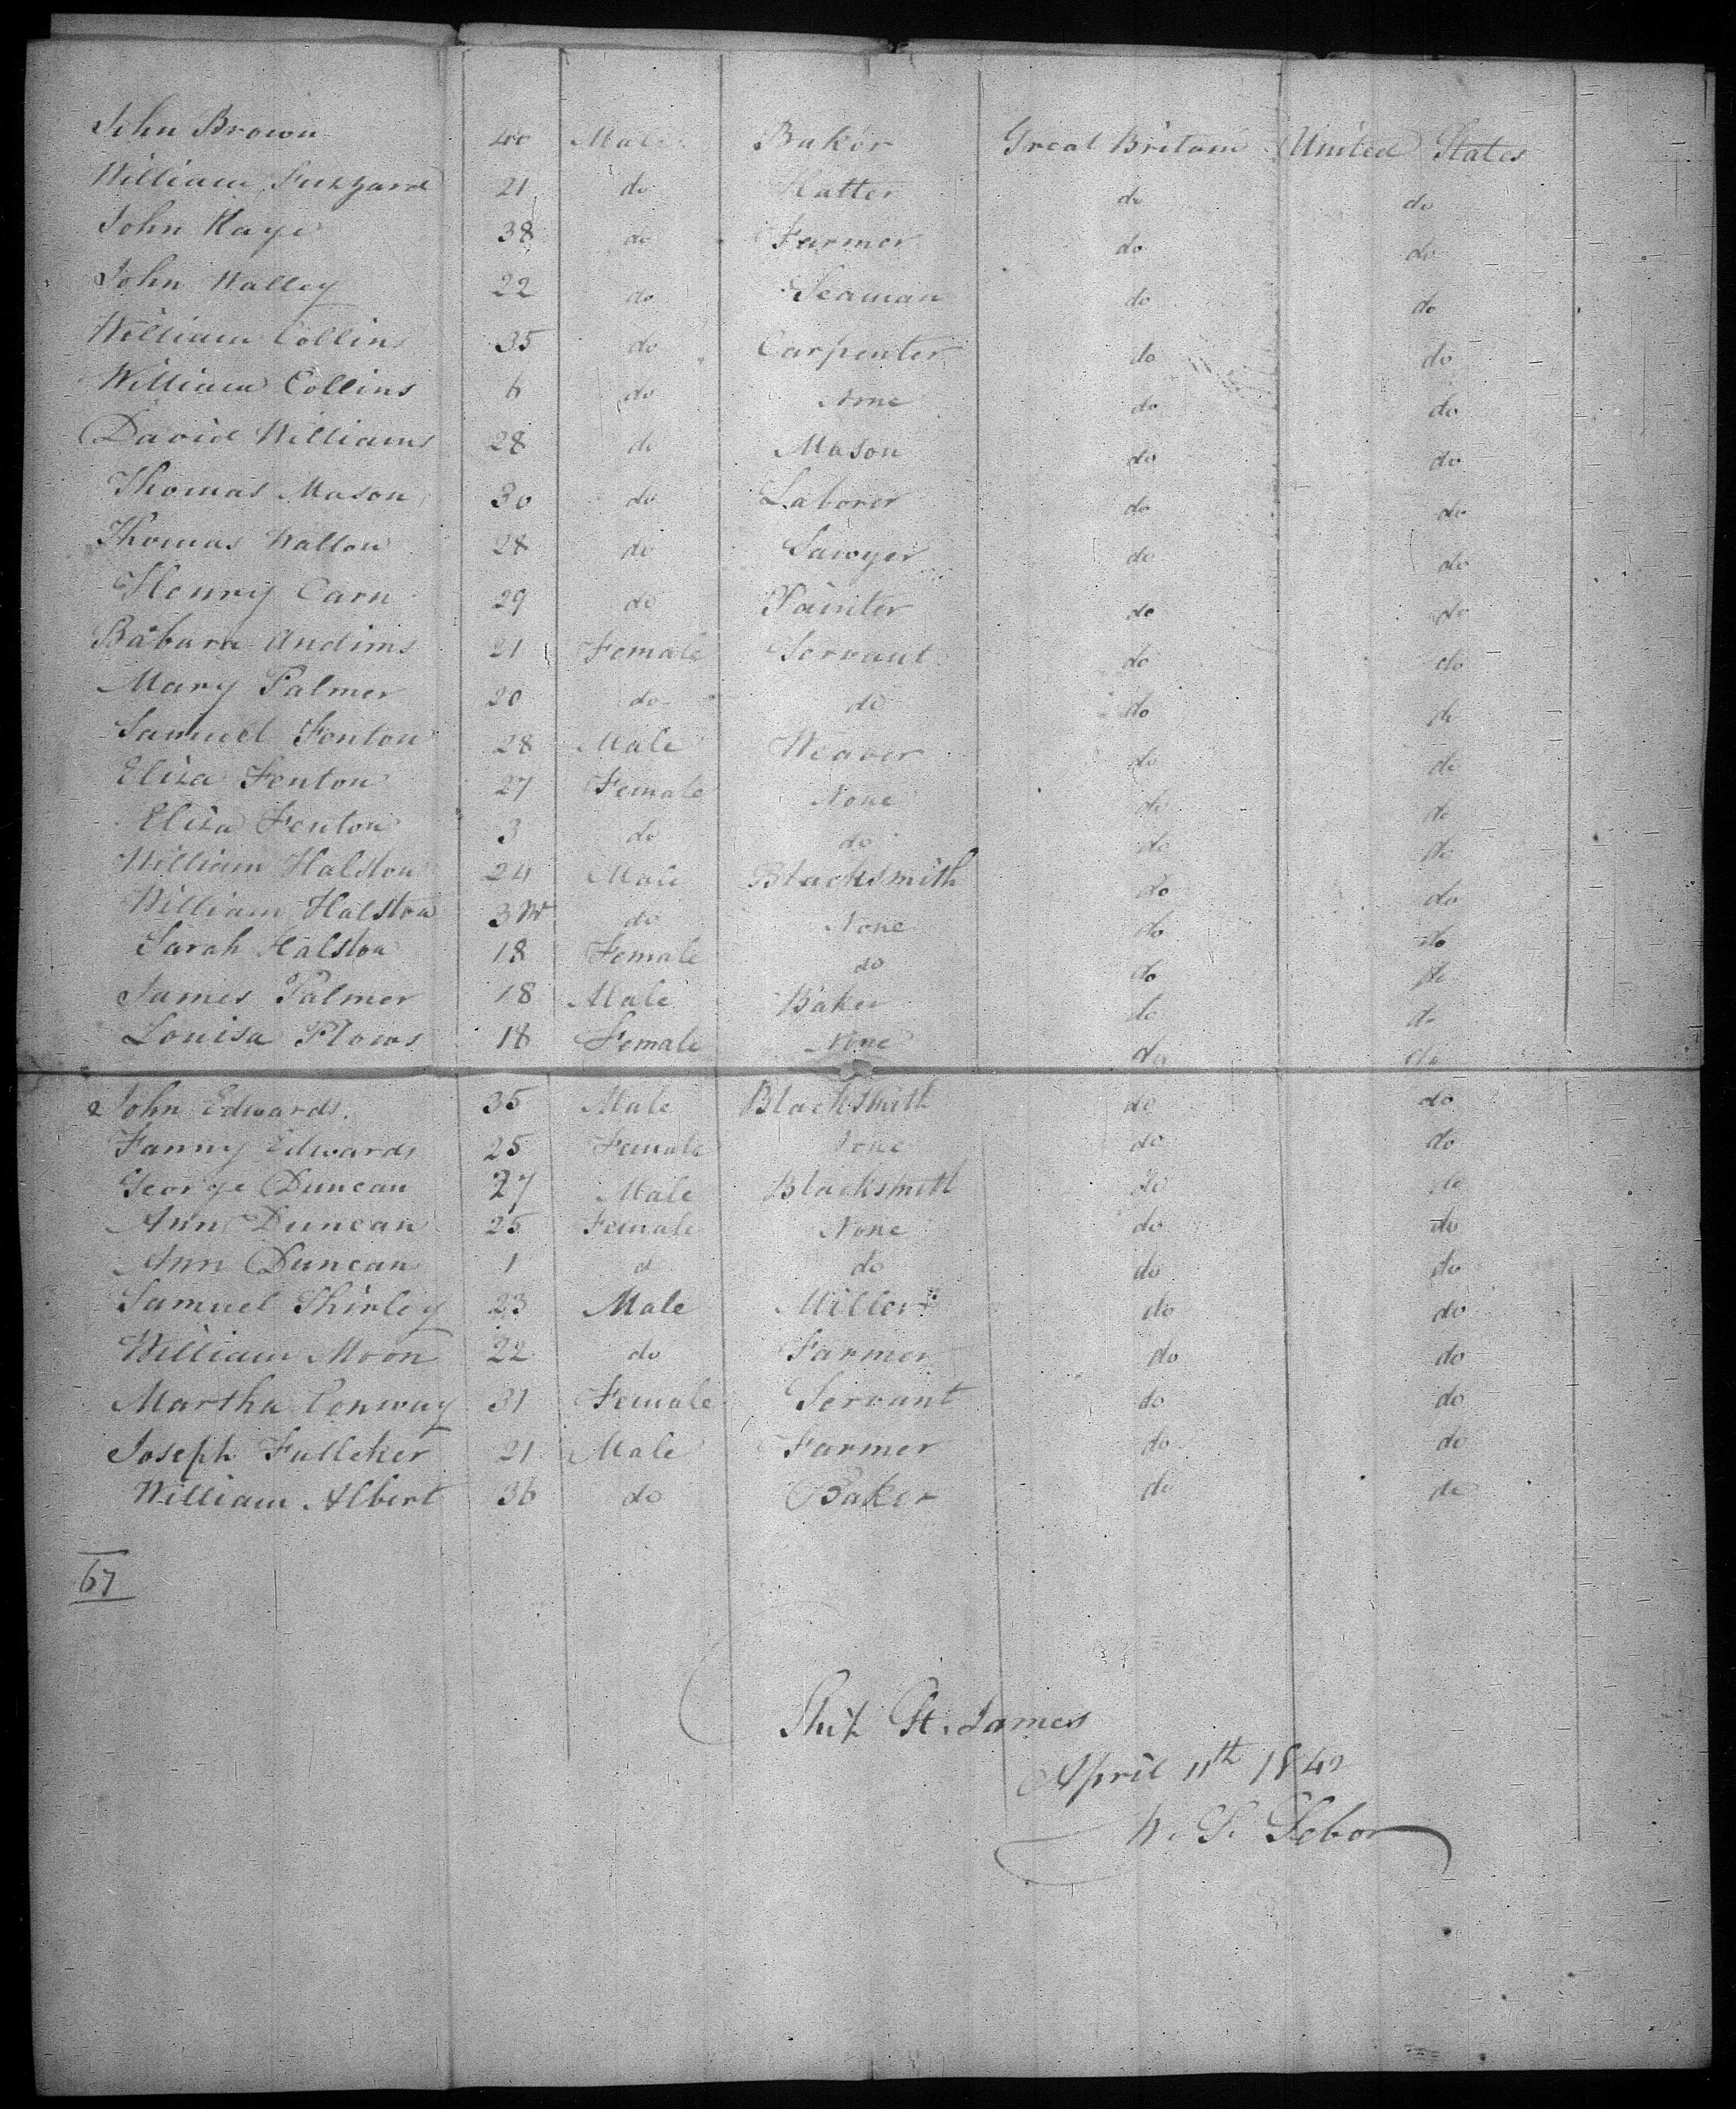 John Brown 40 Male Baker Great Britain United States
William Fuzzard 21 do Hatter do do
John Kaye 38 do Farmer do do
John Walley 22 do Seaman do do
William Collins 35 do Carpenter do do
William Collins 6 do None do do
David Williams 28 do Mason do do
Thomas Mason 30 do Laborer do do
Thomas Walton 28 do Sawyer do do
Henry Carn 29 do Painter do do
Babara Andims 21 Female Servant do do
Mary Palmer 20 do do do do
Samuel Fenton 28 Male Weaver do do
Eliza Fenton 27 Female None do do
Eliza Fenton 3 do do do do
William Halston 24 Male Blacksmith do do
William Halston 3 W do None do do
Sarah Halston 18 Female do do do
James Palmer 18 Male Baker do do
Louisa Plows 18 Female None do do
John Edwards 35 Male Blacksmith do do
Fanny Edwards 25 Female None do do
George Duncan 27 Male Blacksmith do do
Ann Duncan 25 Female None do do
Ann Duncan 1 d do do do
Samuel Shirley 23 Male Miller do do
William Moon 22 do Farmer do do
Martha Conway 31 Female Servant do do
Joseph Fulleker 21 Male Farmer do do
William Albert 36 do Baker do do
67
Ship St. James
April 11th 1842
W. S. Sebor